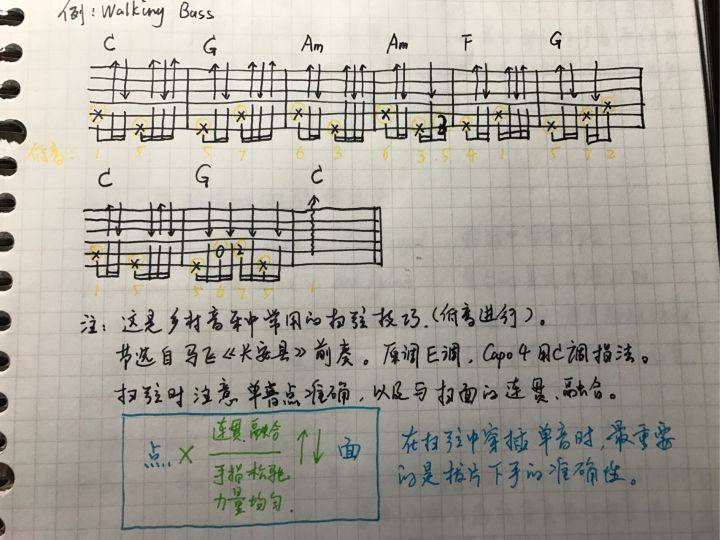 例：Walking Bass
C G Am Am F G
3
低音： 1 5 5 7 6 3 6 3 5 4 1 5 7 2
C G C
0 2
1 5 5 6 7 5 1
注：这是乡村音乐中常用的扫弦技巧.(低音进行)。
节选自马飞《长安县》前奏。原调E调，Capo 4 用C调指法。
扫弦时注意单音点准确，以及与扫面的连贯、融合。
点 × 连贯、融合 ↑↓ 面
手指松弛
力量均匀.
在扫弦中穿插单音时，最重要
的是拨片下手的准确性。